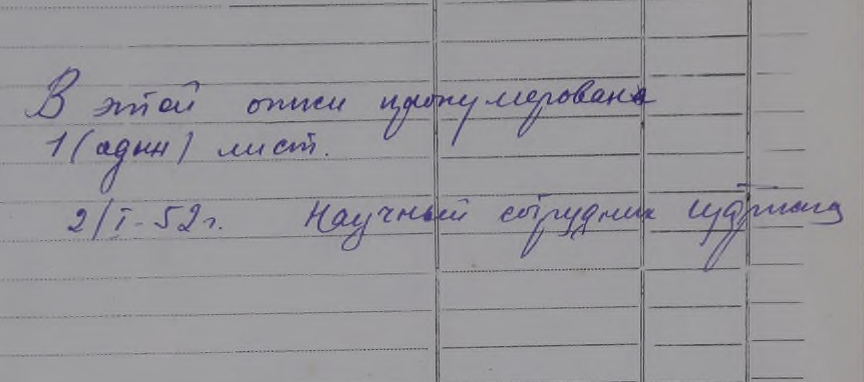 В этой описи пронумерован
1 (один) лист.
2/I-52г. Научный сотрудник